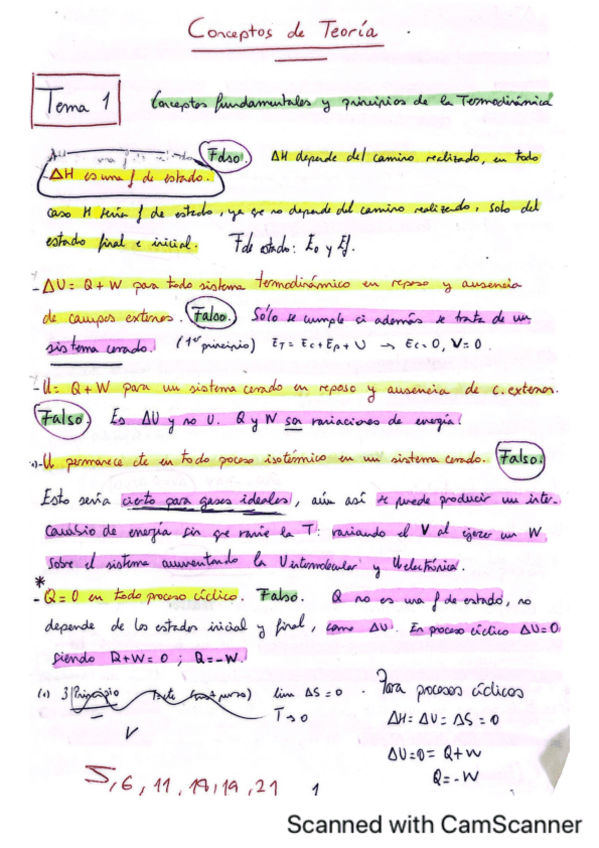 Conceptos de Teoría
Tema 1
Conceptos fundamentales y principios de la Termodinámica
Falso. ΔH depende del camino realizado, en todo
- ΔH es una f de estado.
caso H sería f de estado, ya qe no depende del camino realizado, solo del
estado final e inicial. F de estado: E₀ y Ef.
- ΔU = Q + W para todo sistema termodinámico en reposo y ausencia
de campos externos. Falso. Sólo se cumple si además se trata de un
sistema cerrado. (1er principio) ET = Ec + Ep + U → Ec = 0, V = 0.
- U = Q + W para un sistema cerrado en reposo y ausencia de c. externos.
Falso. Es ΔU y no U. Q y W son variaciones de energía!
- U permanece cte en todo proceso isotérmico en un sistema cerrado. Falso.
Esto sería cierto para gases ideales, aún así se puede producir un inter-
cambio de energía sin qe varíe la T: variando el V al ejercer un W
sobre el sistema aumentando la U intermolecular y U electrónica.
*
- Q = 0 en todo proceso cíclico. Falso. Q no es una f de estado, no
depende de los estados inicial y final, como ΔU. En proceso cíclico ΔU = 0
siendo Q + W = 0 ; Q = -W.
3 Principio lim ΔS = 0
T → 0
V
· Para procesos cíclicos
ΔH = ΔU = ΔS = 0
ΔU = 0 = Q + W
Q = -W
5, 6, 11, 18, 19, 21
1
Scanned with CamScanner